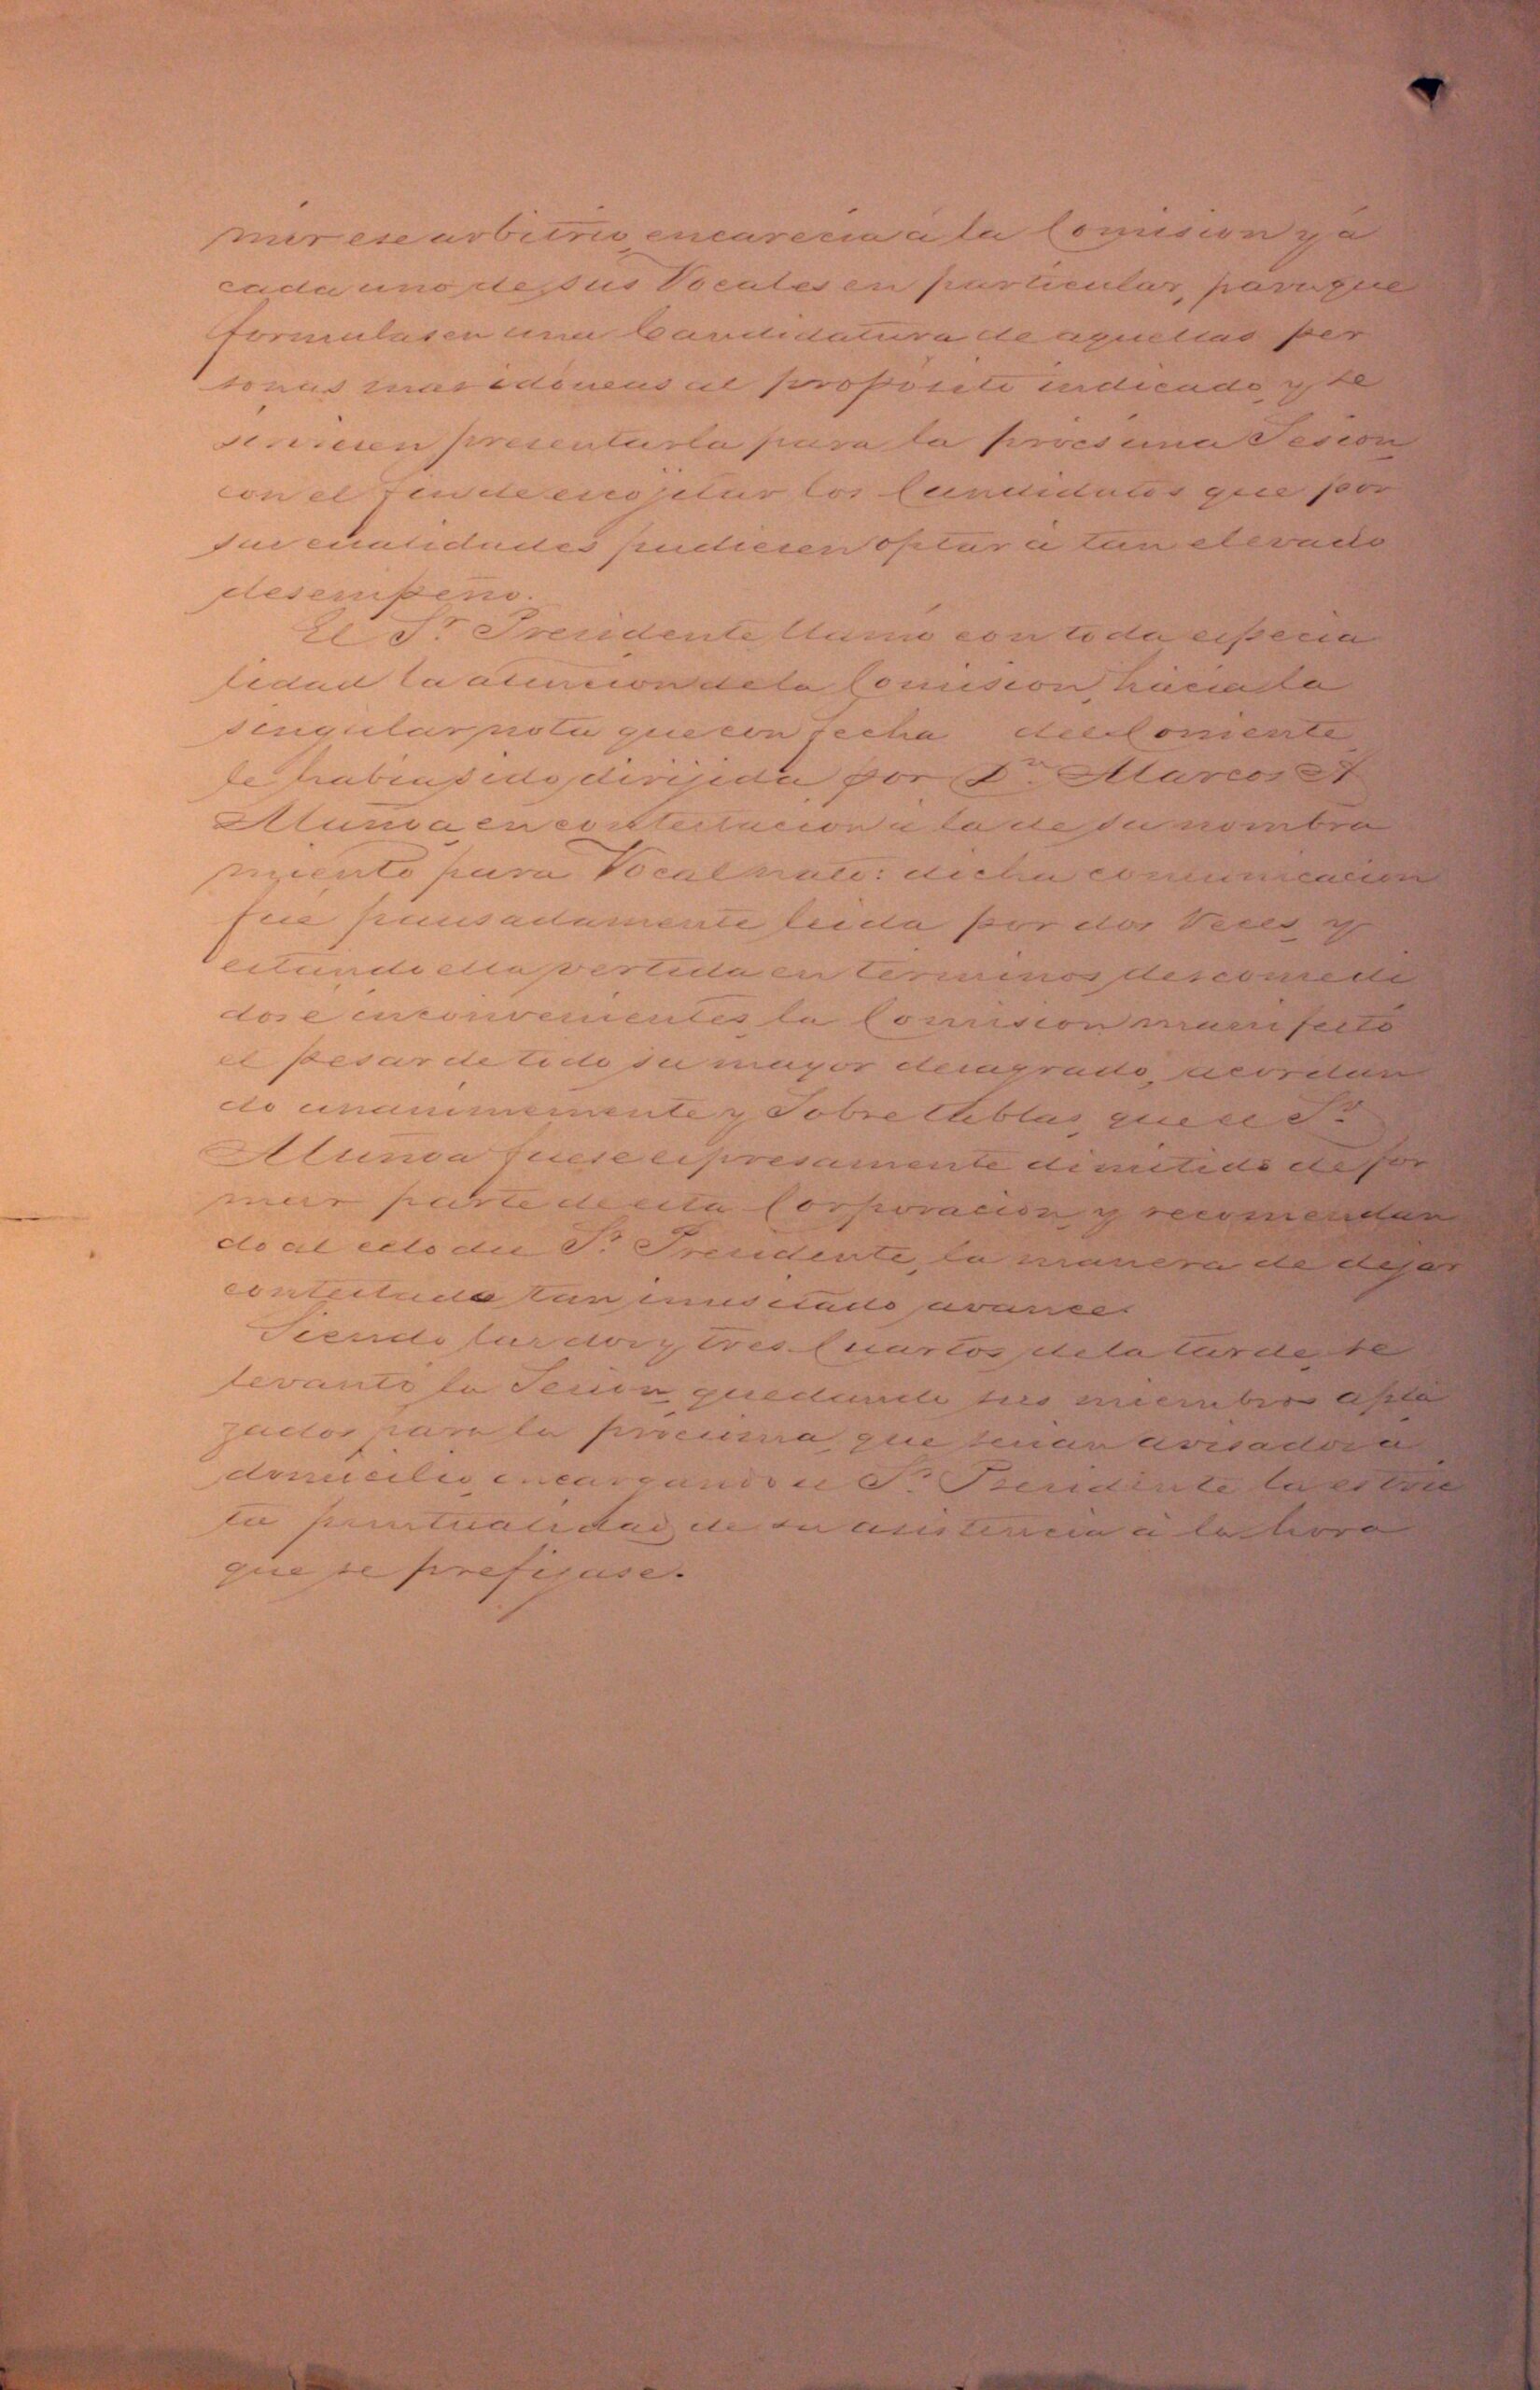 mir ese arbitrio, encarecia á la Comision y á
cada uno de sus Vocales en particular, para que
formulasen una Candidatura de aquellas per
sonas mas idóneas al propósito indicado, y se
sirviesen presentarla para la procsima Sesion
con el fin de escojitar los Candidatos que por
sus cualidades pudiesen optar á tan elevado
desempeño.
El Sr. Presidente llamó con toda especia
lidad la atencion de la Comision, hácia la
singular nota que con fecha del Corriente
le habia sido dirijida por Dn. Marcos A
Munóa en contestacion á la de su nombra
miento para Vocal nato: dicha comunicacion
fué pausadamente leida por dos Veces, y
estando ella vertida en términos descomedi
dos é inconvenientes la Comision manifestó
el pesar de todo su mayor desagrado, acordan
do unanimemente y Sobre tablas, que el Sr.
Munóa fuese espresamente dimitido de for
mar parte de esta Corporacion, y recomendan
do al celo del Sr. Presidente, la manera de dejar
contestado tan inusitado avance.
Siendo las dos y tres Cuartos de la tarde, se
levantó la Sesion, quedando sus miembros apla
zados para la procsima, que serian avisados á
domicilio, encargando el Sr. Presidente la estric
ta puntualidad, de su asistencia á la hora
que se prefijase.